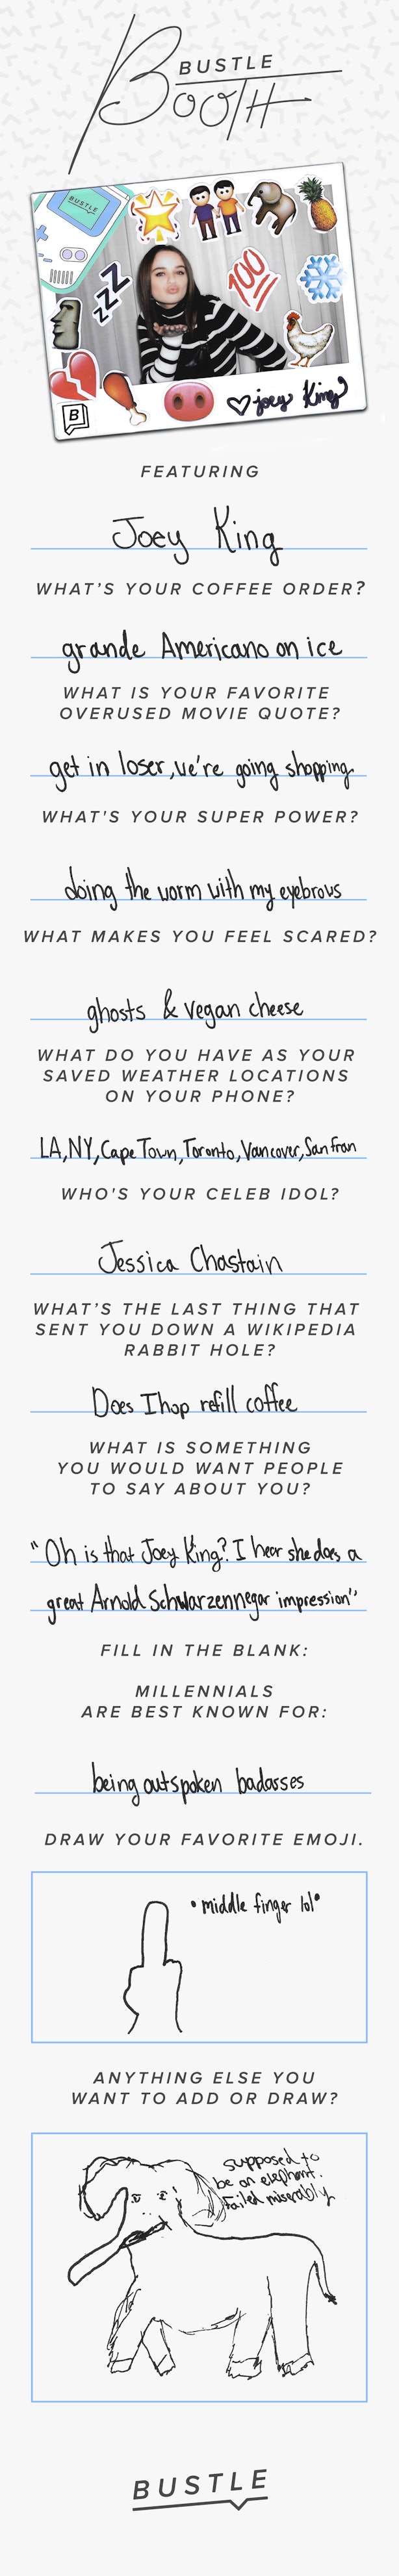 BUSTLE
BOOTH
BUSTLE
zzZ
100
B
♡ joey King
FEATURING
Joey King
WHAT'S YOUR COFFEE ORDER?
grande Americano on ice
WHAT IS YOUR FAVORITE
OVERUSED MOVIE QUOTE?
get in loser, we're going shopping
WHAT'S YOUR SUPER POWER?
doing the worm with my eyebrows
WHAT MAKES YOU FEEL SCARED?
ghosts & vegan cheese
WHAT DO YOU HAVE AS YOUR
SAVED WEATHER LOCATIONS
ON YOUR PHONE?
LA, NY, Cape Town, Toronto, Vancover, San fran
WHO'S YOUR CELEB IDOL?
Jessica Chastain
WHAT'S THE LAST THING THAT
SENT YOU DOWN A WIKIPEDIA
RABBIT HOLE?
Does Ihop refill coffee
WHAT IS SOMETHING
YOU WOULD WANT PEOPLE
TO SAY ABOUT YOU?
"Oh is that Joey King? I hear she does a
great Arnold Schwarzennegar impression"
FILL IN THE BLANK:
MILLENNIALS
ARE BEST KNOWN FOR:
being outspoken badasses
DRAW YOUR FAVORITE EMOJI.
•middle finger lol•
ANYTHING ELSE YOU
WANT TO ADD OR DRAW?
supposed to
be an elephant.
Failed miserably
BUSTLE